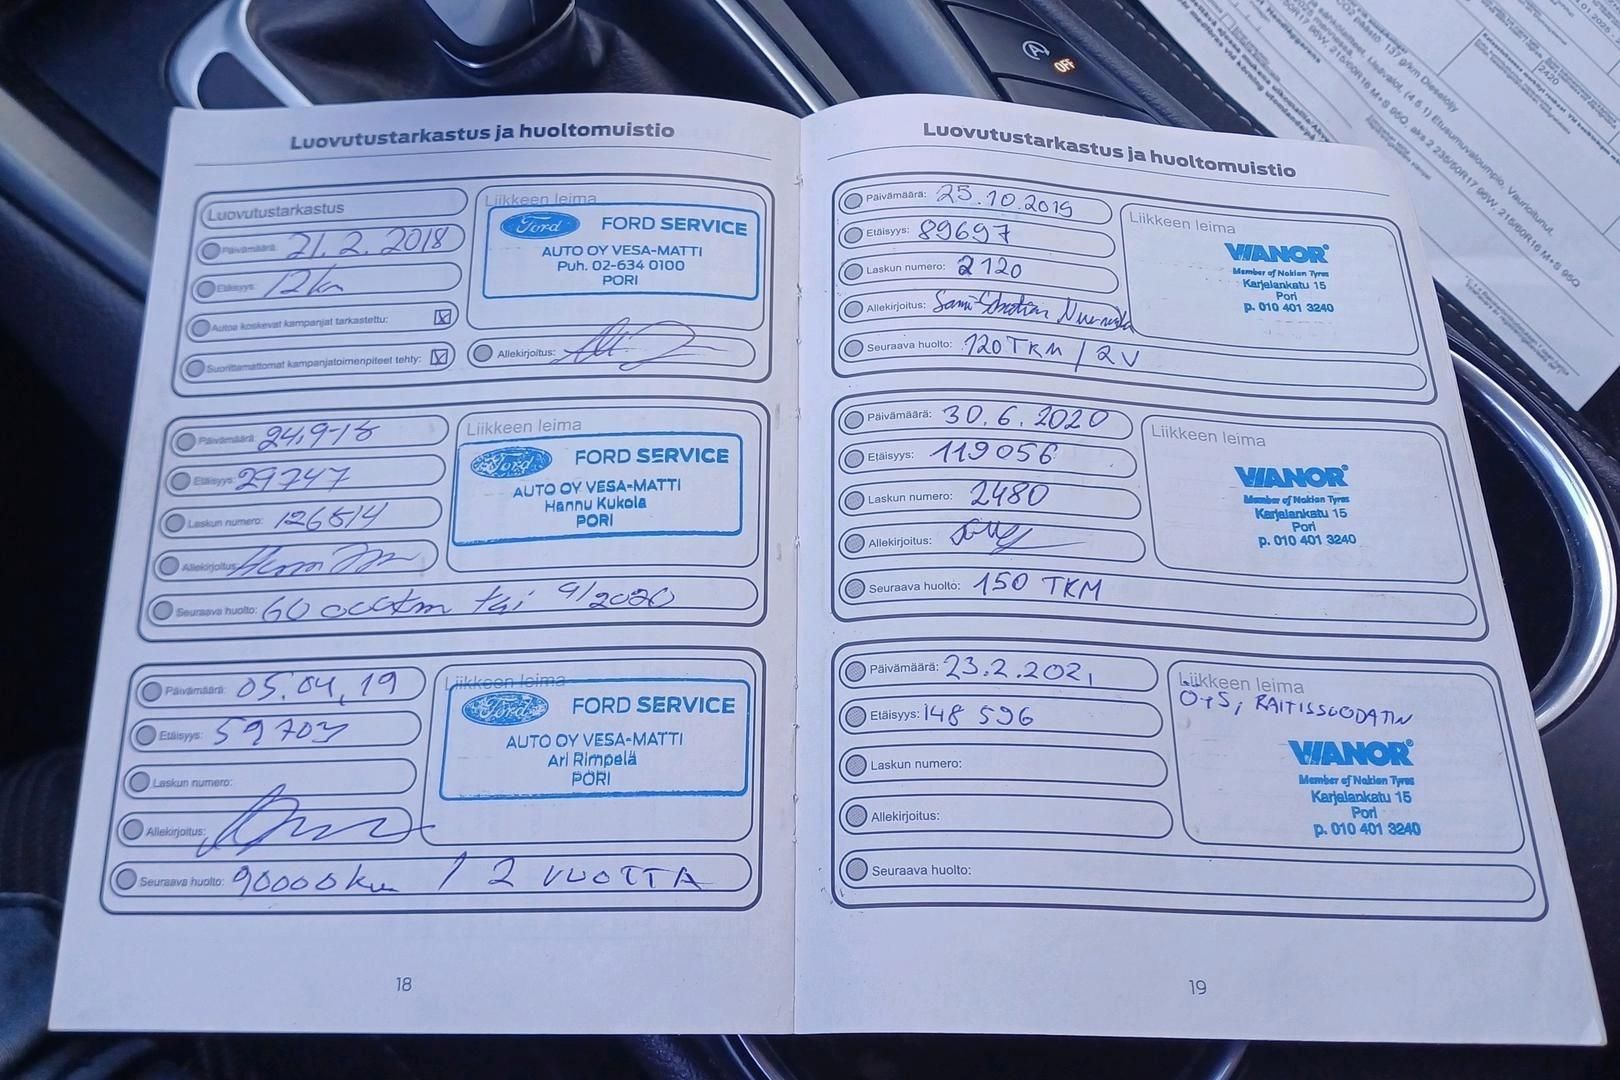 Luovutustarkastus ja huoltomuistio
Luovutustarkastus
Päivämäärä: 21.2.2018
Etäisyys: 12km
Autoa koskevat kampanjat tarkastettu: X
Suorittamattomat kampanjatoimenpiteet tehty: X
Liikkeen leima
Ford FORD SERVICE
AUTO OY VESA-MATTI
Puh. 02-634 0100
PORI
Allekirjoitus:
Päivämäärä: 24.9-18
Etäisyys: 29747
Laskun numero: 126514
Allekirjoitus:
Seuraava huolto: 60 000km tai 9/2020
Liikkeen leima
Ford FORD SERVICE
AUTO OY VESA-MATTI
Hannu Kukola
PORI
Päivämäärä: 05.04.19
Etäisyys: 59703
Laskun numero:
Allekirjoitus:
Seuraava huolto: 90000km / 2 VUOTTA
Liikkeen leima
Ford FORD SERVICE
AUTO OY VESA-MATTI
Ari Rimpelä
PORI
18
Luovutustarkastus ja huoltomuistio
Päivämäärä: 25.10.2019
Etäisyys: 89697
Laskun numero: 2120
Allekirjoitus:
Seuraava huolto: 120 TKM / 2V
Liikkeen leima
VIANOR®
Member of Nokian Tyres
Karjalankatu 15
Pori
p. 010 401 3240
Päivämäärä: 30.6.2020
Etäisyys: 119056
Laskun numero: 2480
Allekirjoitus:
Seuraava huolto: 150 TKM
Liikkeen leima
VIANOR®
Member of Nokian Tyres
Karjalankatu 15
Pori
p. 010 401 3240
Päivämäärä: 23.2.2021
Etäisyys: 148 596
Laskun numero:
Allekirjoitus:
Seuraava huolto:
Liikkeen leima
Ö+S, RAITISSUODATIN
VIANOR®
Member of Nokian Tyres
Karjalankatu 15
Pori
p. 010 401 3240
19
A OFF
137 g/km Dieselöljy
Etusumuvaloumpio. Vaurioitunut.
2420